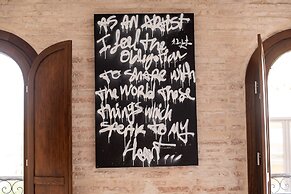 AS AN ARTIST
I feel the
Obligation
TO SHARE WITH
THE WORLD Those
Things which
SPEAK TO MY
Heart...